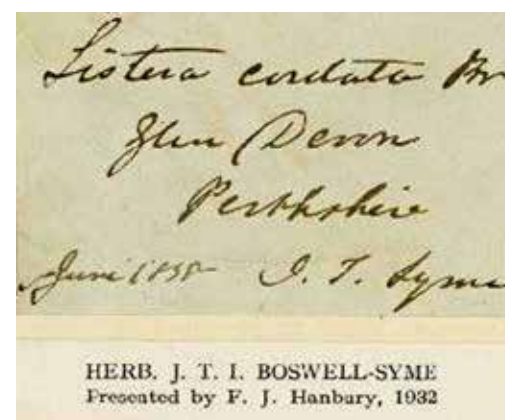 Listera cordata Br
Glen Devon
Perthshire
June J. T. Syme
HERB. J. T. I. BOSWELL-SYME
Presented by F. J. Hanbury, 1932